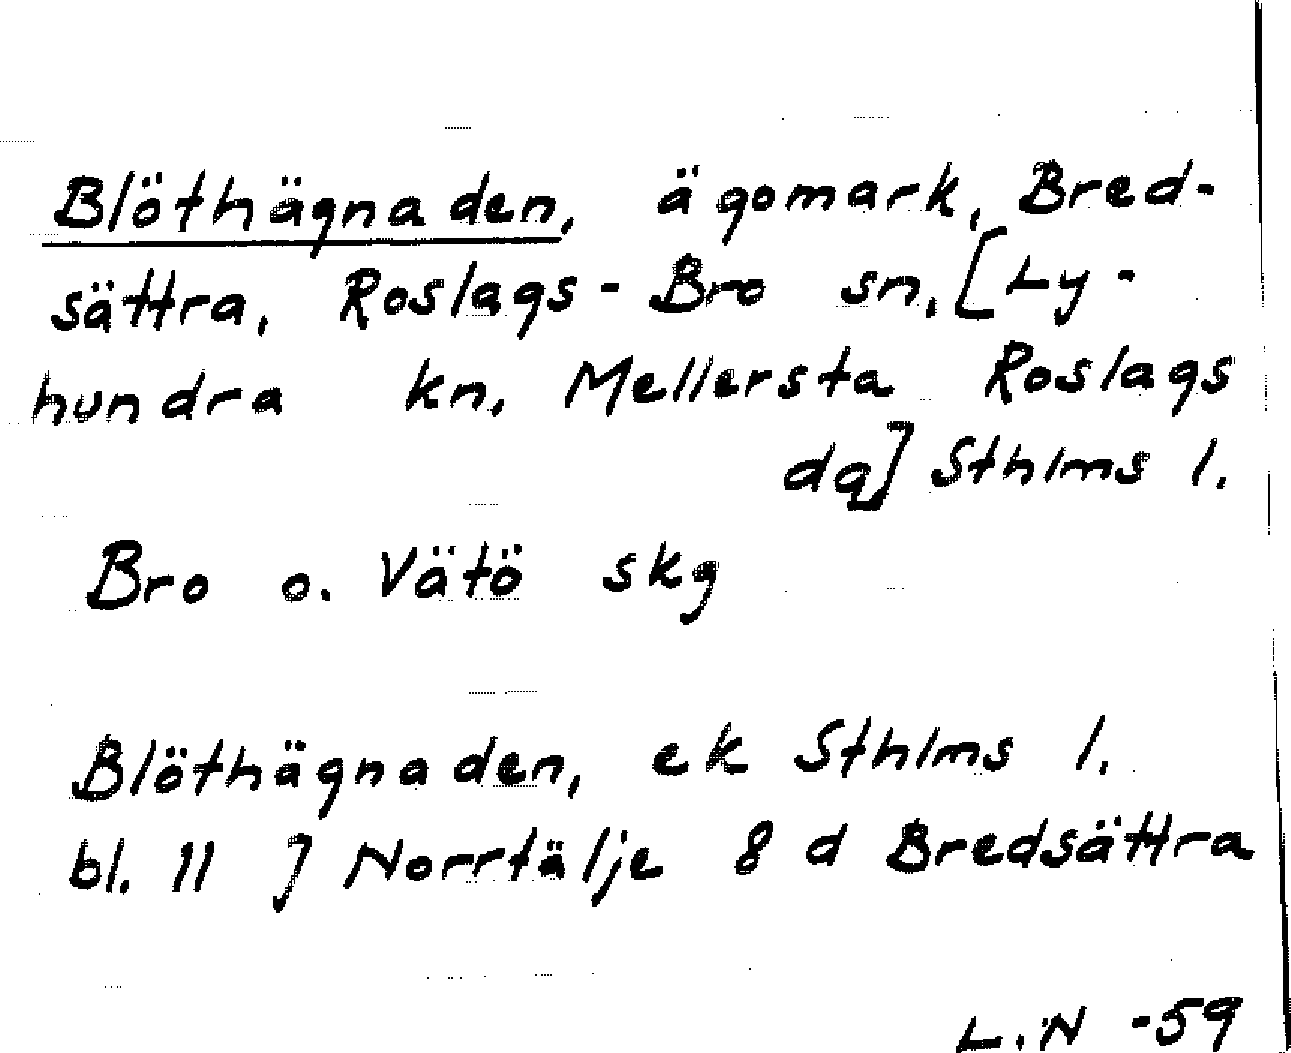 Blöthägnaden, ägomark, Bred-
sättra, Roslags-Bro sn, [Ly-
hundra kn, Mellersta Roslags
dg] Sthlms l.
Bro o. Vätö skg
Blöthägnaden, ek Sthlms l.
bl. 11 J Norrtälje 8 d Bredsättra
L.N -59